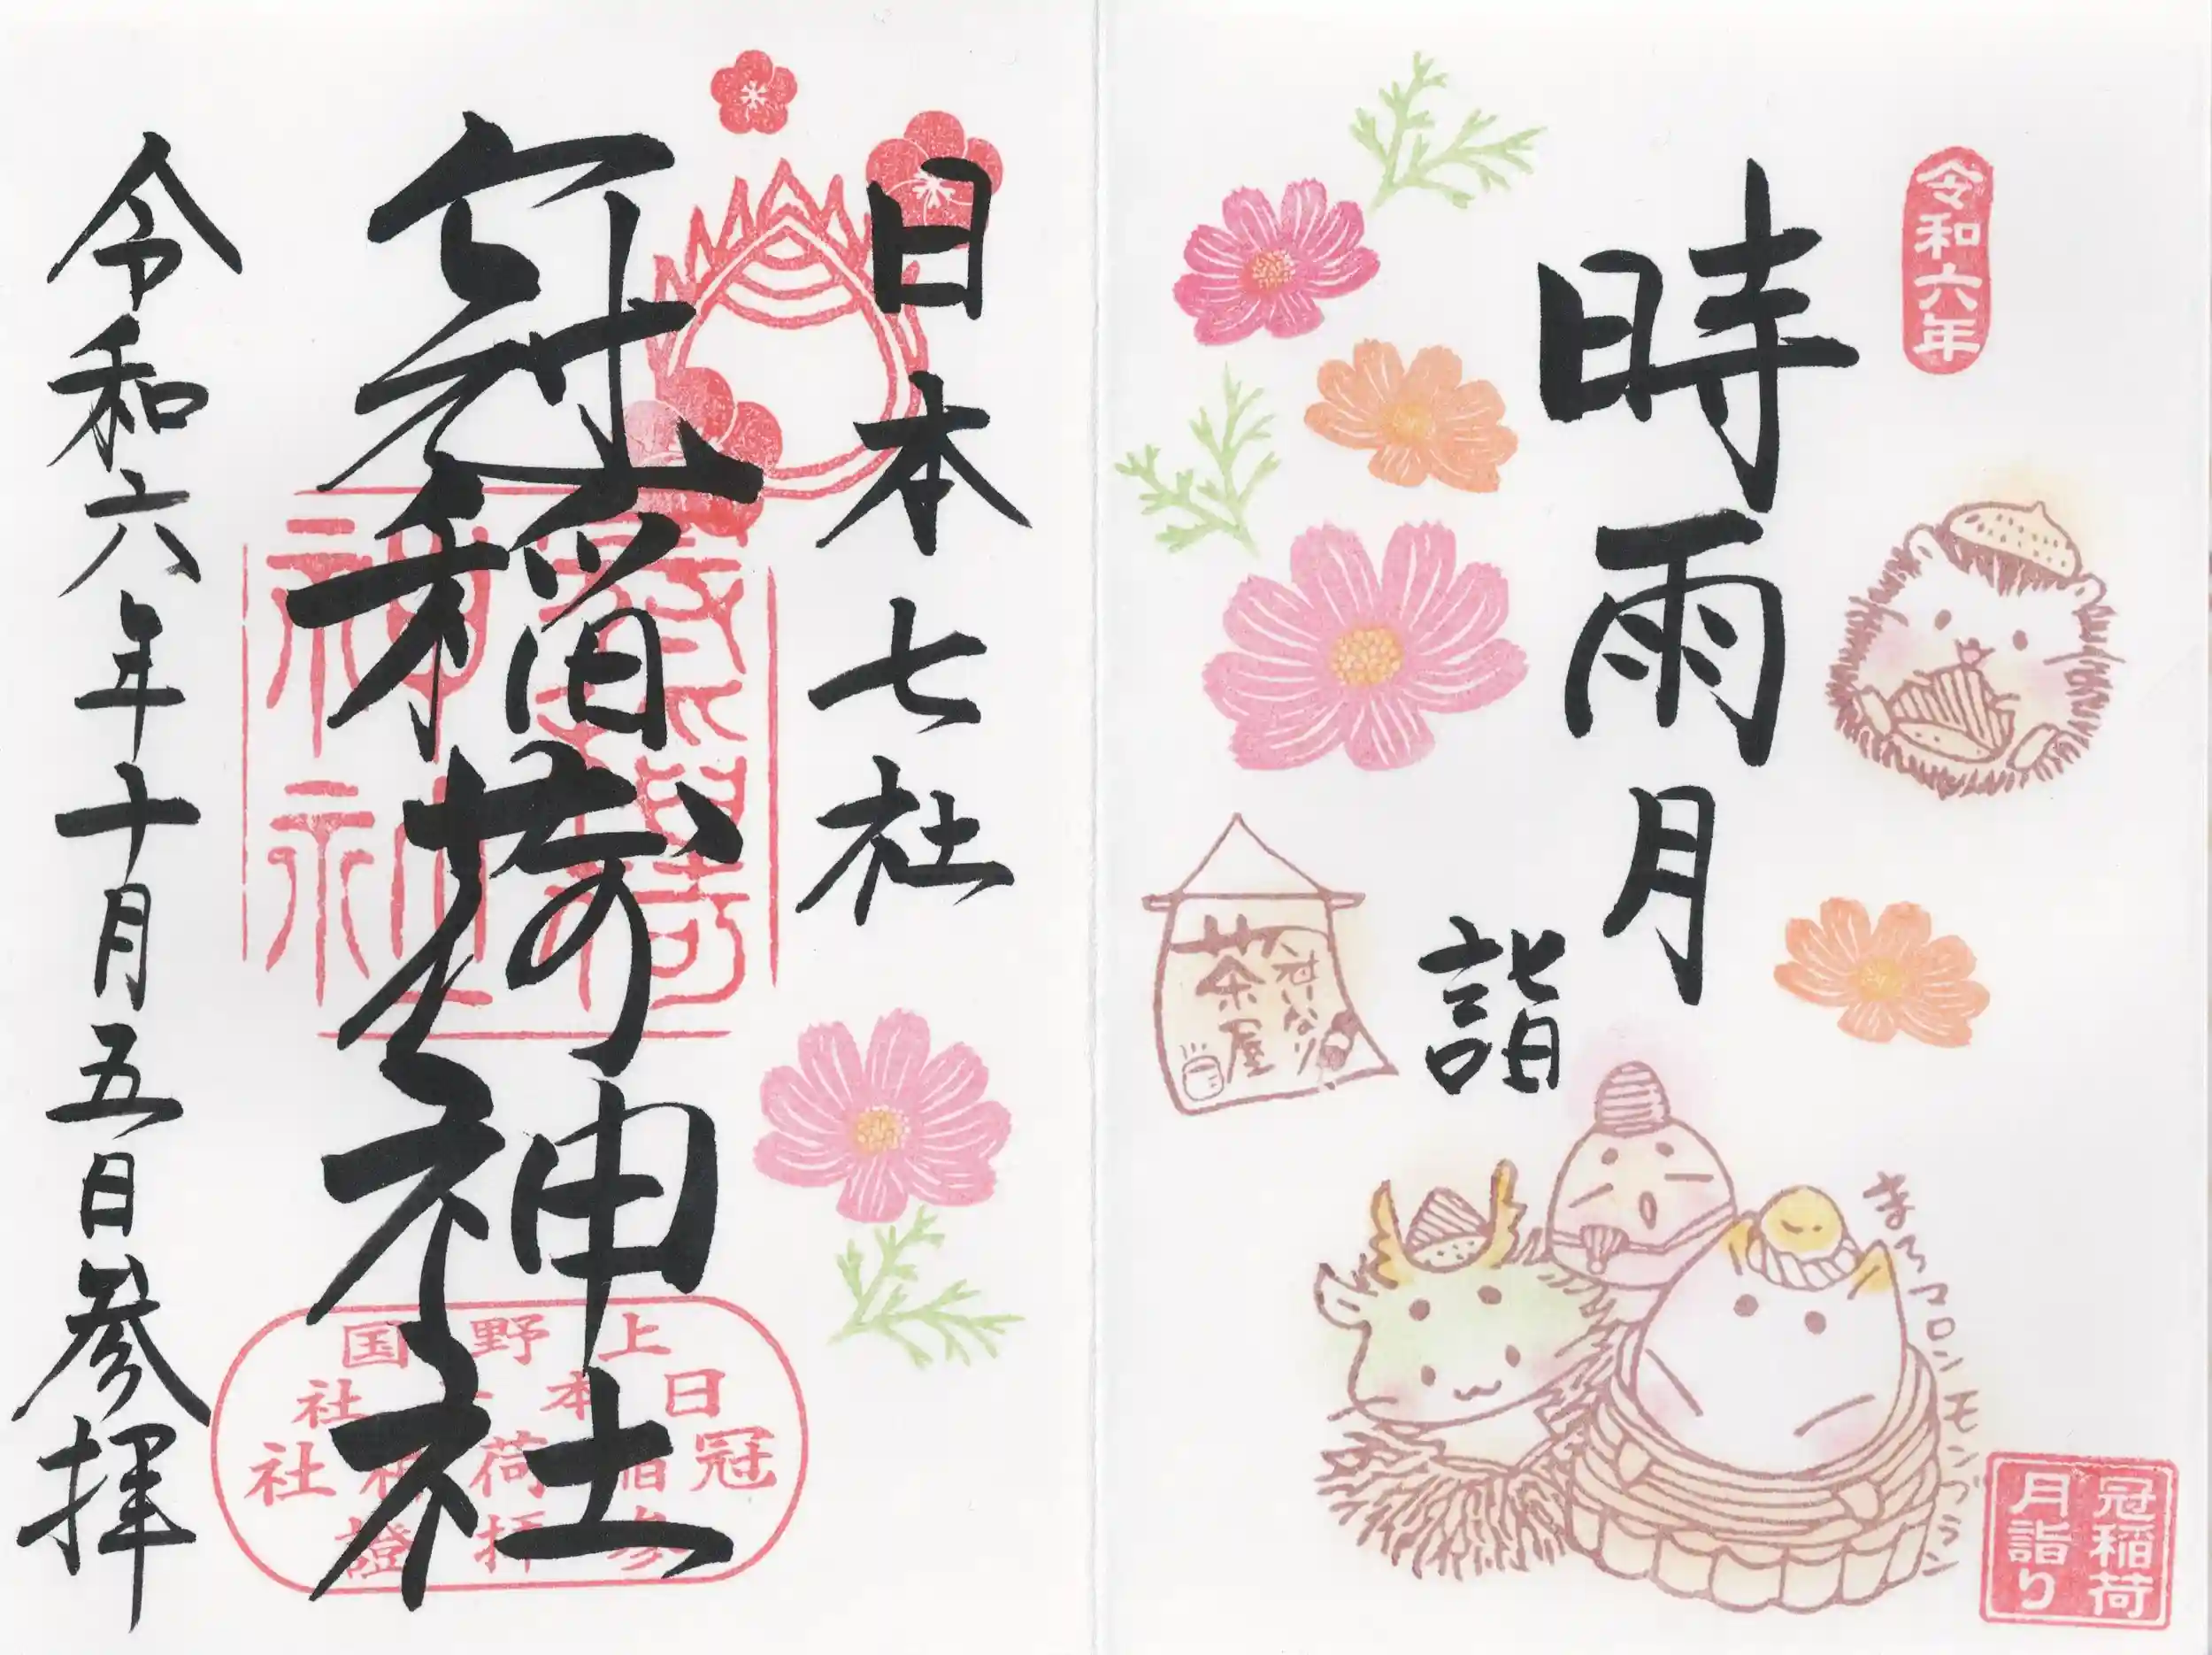 令和六年
時雨月
詣
冠いなり
茶屋
まろマロンモンブラン
冠稲荷
月詣り
日本七社
冠稲荷神社
上野国
日本七社
冠稲荷神社
参拝證
令和六年十月五日参拝